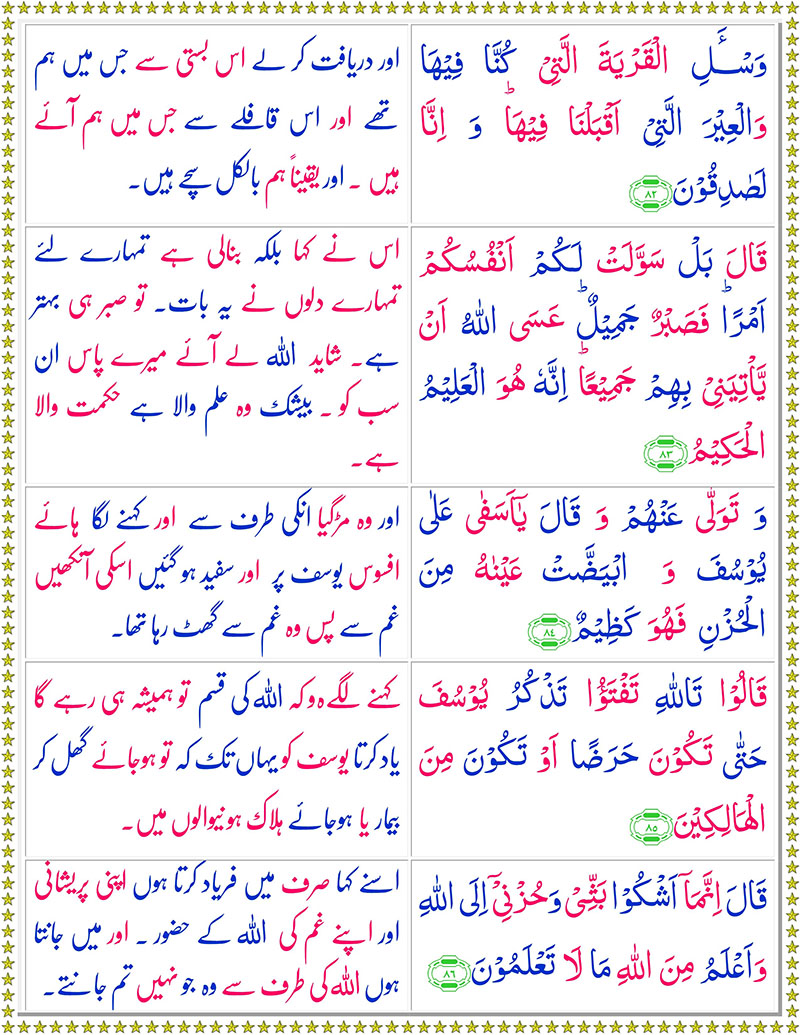 وَسْـَٔلِ الْقَرْيَةَ الَّتِيْ كُنَّا فِيْهَا
وَالْعِيْرَ الَّتِيْۤ اَقْبَلْنَا فِيْهَا ؕ وَ اِنَّا
لَصٰدِقُوْنَ ﴿٨٢﴾
اور دریافت کر لے اس بستی سے جس میں ہم
تھے اور اس قافلے سے جس میں ہم آئے
ہیں ۔ اور یقیناً ہم بالکل سچے ہیں۔
قَالَ بَلْ سَوَّلَتْ لَكُمْ اَنْفُسُكُمْ
اَمْرًا ؕ فَصَبْرٌ جَمِيْلٌ ؕ عَسَى اللّٰهُ اَنْ
يَّاْتِيَنِيْ بِهِمْ جَمِيْعًا ؕ اِنَّهٗ هُوَ الْعَلِيْمُ
الْحَكِيْمُ ﴿٨٣﴾
اس نے کہا بلکہ بنالی ہے تمہارے لئے
تمہارے دلوں نے یہ بات۔ تو صبر ہی بہتر
ہے۔ شاید اللہ لے آئے میرے پاس ان
سب کو ۔ بیشک وہ علم والا ہے حکمت والا
ہے۔
وَ تَوَلّٰى عَنْهُمْ وَ قَالَ يٰۤاَسَفٰى عَلٰى
يُوْسُفَ وَ ابْيَضَّتْ عَيْنٰهُ مِنَ
الْحُزْنِ فَهُوَ كَظِيْمٌ ﴿٨٤﴾
اور وہ مڑگیا انکی طرف سے اور کہنے لگا ہائے
افسوس یوسف پر اور سفید ہو گئیں اسکی آنکھیں
غم سے پس وہ غم سے گھٹ رہا تھا۔
قَالُوْا تَاللّٰهِ تَفْتَؤُا تَذْكُرُ يُوْسُفَ
حَتّٰى تَكُوْنَ حَرَضًا اَوْ تَكُوْنَ مِنَ
الْهَالِكِيْنَ ﴿٨٥﴾
کہنے لگے ہ و کہ اللہ کی قسم تو ہمیشہ ہی رہے گا
یاد کرتا یوسف کو یہاں تک کہ تو ہوجائے گھل کر
بیمار یا ہوجائے ہلاک ہونیوالوں میں۔
قَالَ اِنَّمَاۤ اَشْكُوْا بَثِّيْ وَحُزْنِيْۤ اِلَى اللّٰهِ
وَاَعْلَمُ مِنَ اللّٰهِ مَا لَا تَعْلَمُوْنَ ﴿٨٦﴾
اسنے کہا صرف میں فریاد کرتا ہوں اپنی پریشانی
اور اپنے غم کی اللہ کے حضور ۔ اور میں جانتا
ہوں اللہ کی طرف سے وہ جو نہیں تم جانتے۔